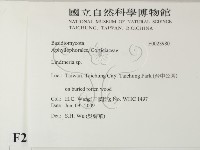 國立自然科學博物館
NATIONAL MUSEUM OF NATURAL SCIENCE
TAICHUNG, TAIWAN, R.O.CHINA
Basidiomycota
Aphyllophorales, Corticiaceae
Lindtneria sp.
Loc: Taiwan, Taichung City, Taichung Park
on buried rotten wood
Col: H.C. Wang No. WHC 1497
Det: S.H. Wu
F2